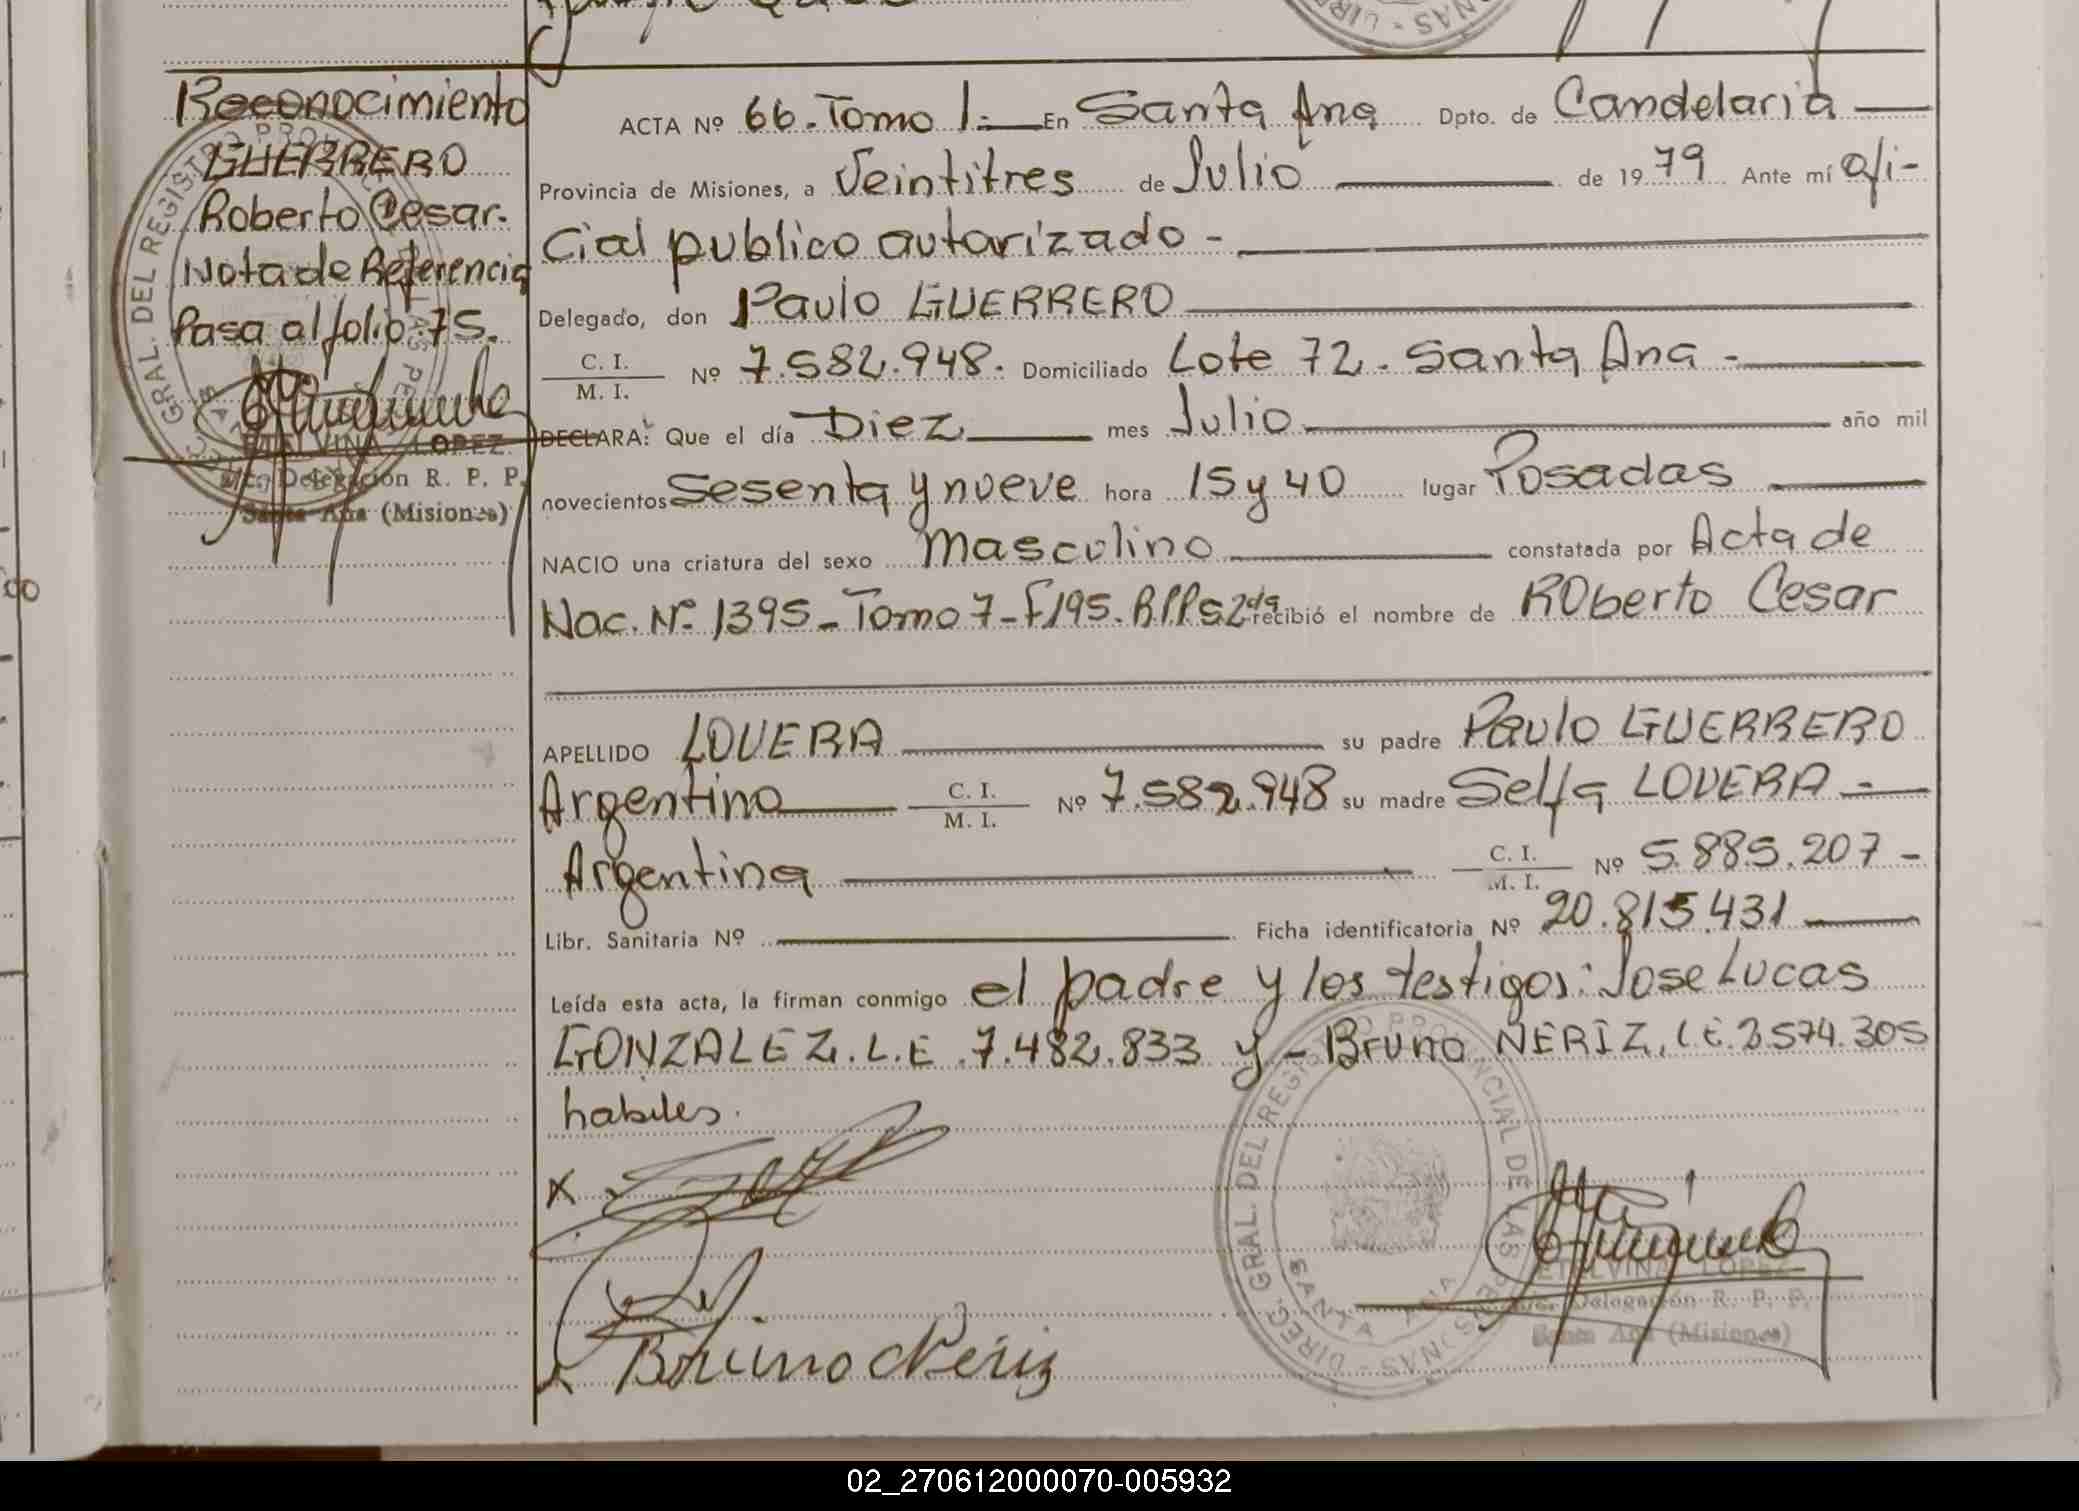 Reconocimiento
GUERRERO
Roberto Cesar.
Nota de Referencia
Pasa al folio 75.
ETELVINA LOPEZ
Delegación R. P. P.
Santa Ana (Misiones)
ACTA Nº 66. Tomo 1.- En Santa Ana Dpto. de Candelaria
Provincia de Misiones, a Veintitres de Julio de 1979 Ante mí ofi-
cial publico autorizado -
Delegado, don Paulo GUERRERO
C. I.
M. I. Nº 7.582.948. Domiciliado Lote 72. Santa Ana -
DECLARA: Que el día Diez mes Julio año mil
novecientos Sesenta y nueve hora 15 y 40 lugar Posadas
NACIO una criatura del sexo masculino constatada por Acta de
Nac. Nº 1395 - Tomo 7 - F 195. recibió el nombre de Roberto Cesar
APELLIDO LOVERA su padre Paulo GUERRERO
Argentino C. I.
M. I. Nº 7.582.948 su madre Selfa LOVERA -
Argentina C. I.
M. I. Nº 5.885.207 -
Libr. Sanitaria Nº Ficha identificatoria Nº 20.815.431
Leída esta acta, la firman conmigo el padre y los testigos: Jose Lucas
GONZALEZ. L.E. 7.482.833 y - Bruno NERIZ, L.E. 3.574.305
habiles.
x
Bruno Neriz
DIREC. GRAL. DEL REGISTRO PROVINCIAL DE LAS PERSONAS -
SANTA ANA
ETELVINA LOPEZ
Delegación R. P. P.
Santa Ana (Misiones)
02_270612000070-005932